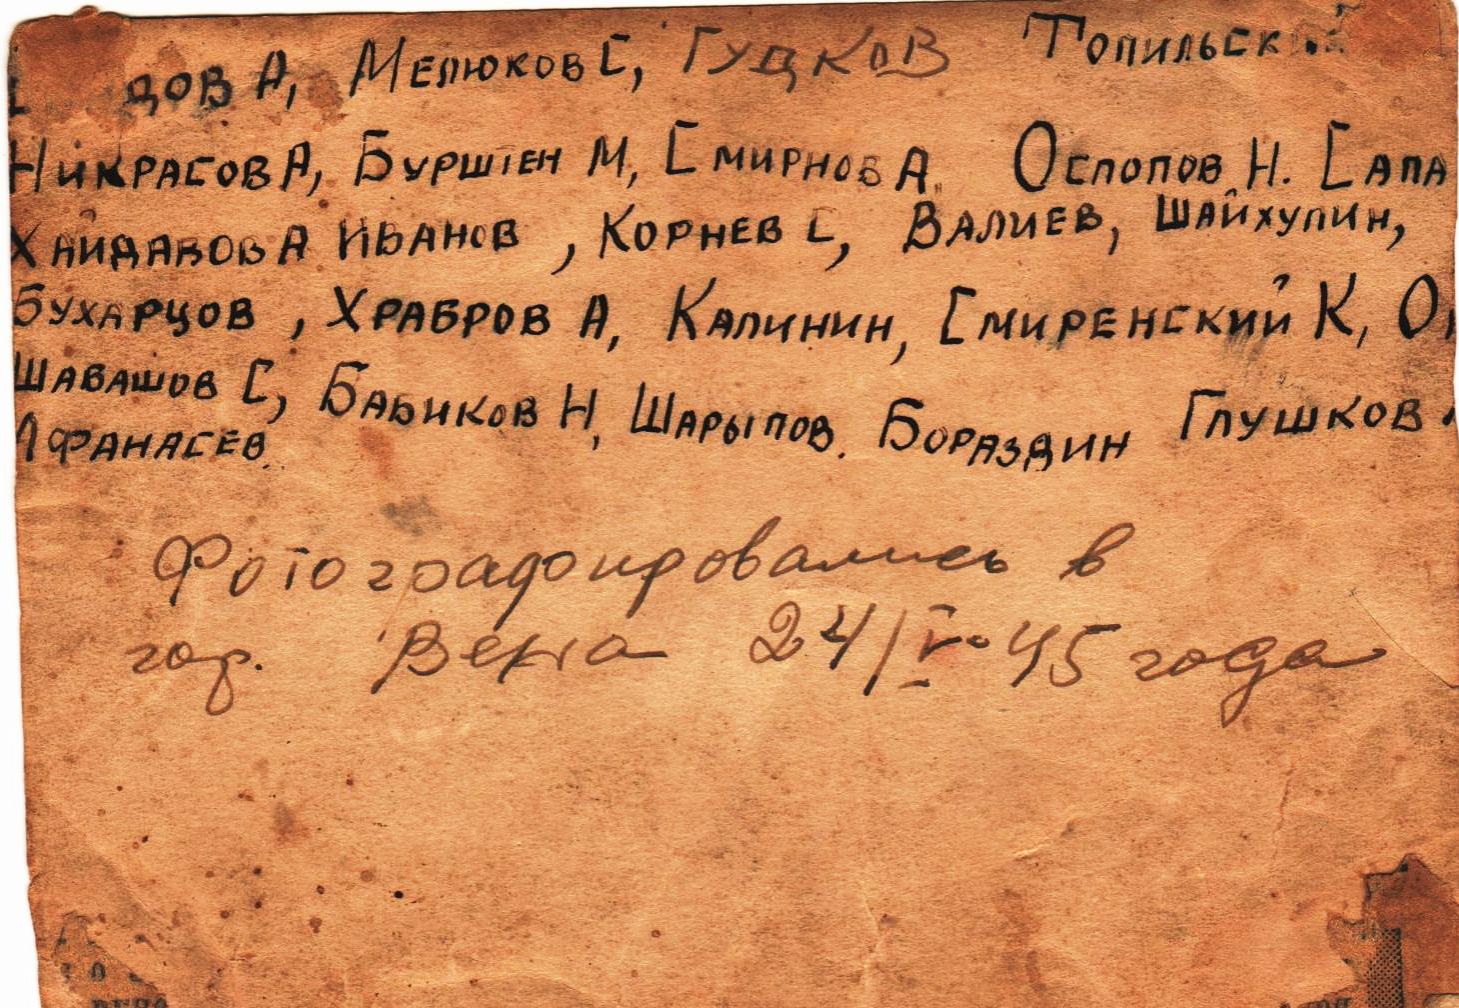 ДОВ А, МЕЛЮКОВ С, ГУЦКОВ ТОПИЛЬСКИЙ
НИКРАСОВ А, БУРШТЕН М, СМИРНОВ А. ОСЛОПОВ Н. САПА
ХАЙДАРОВ А ИВАНОВ, КОРНЕВ С, ВАЛИЕВ, ШАЙХУЛИН,
БУХАРЦОВ, ХРАБРОВ А, КАЛИНИН, СМИРЕНСКИЙ К, О
ШАБАШОВ С, БАБИКОВ Н, ШАРЫПОВ. БОРАЗДИН ГЛУШКОВ
АФАНАСЕВ.
Фотографировались в
гор. Вена 24/V-45 года